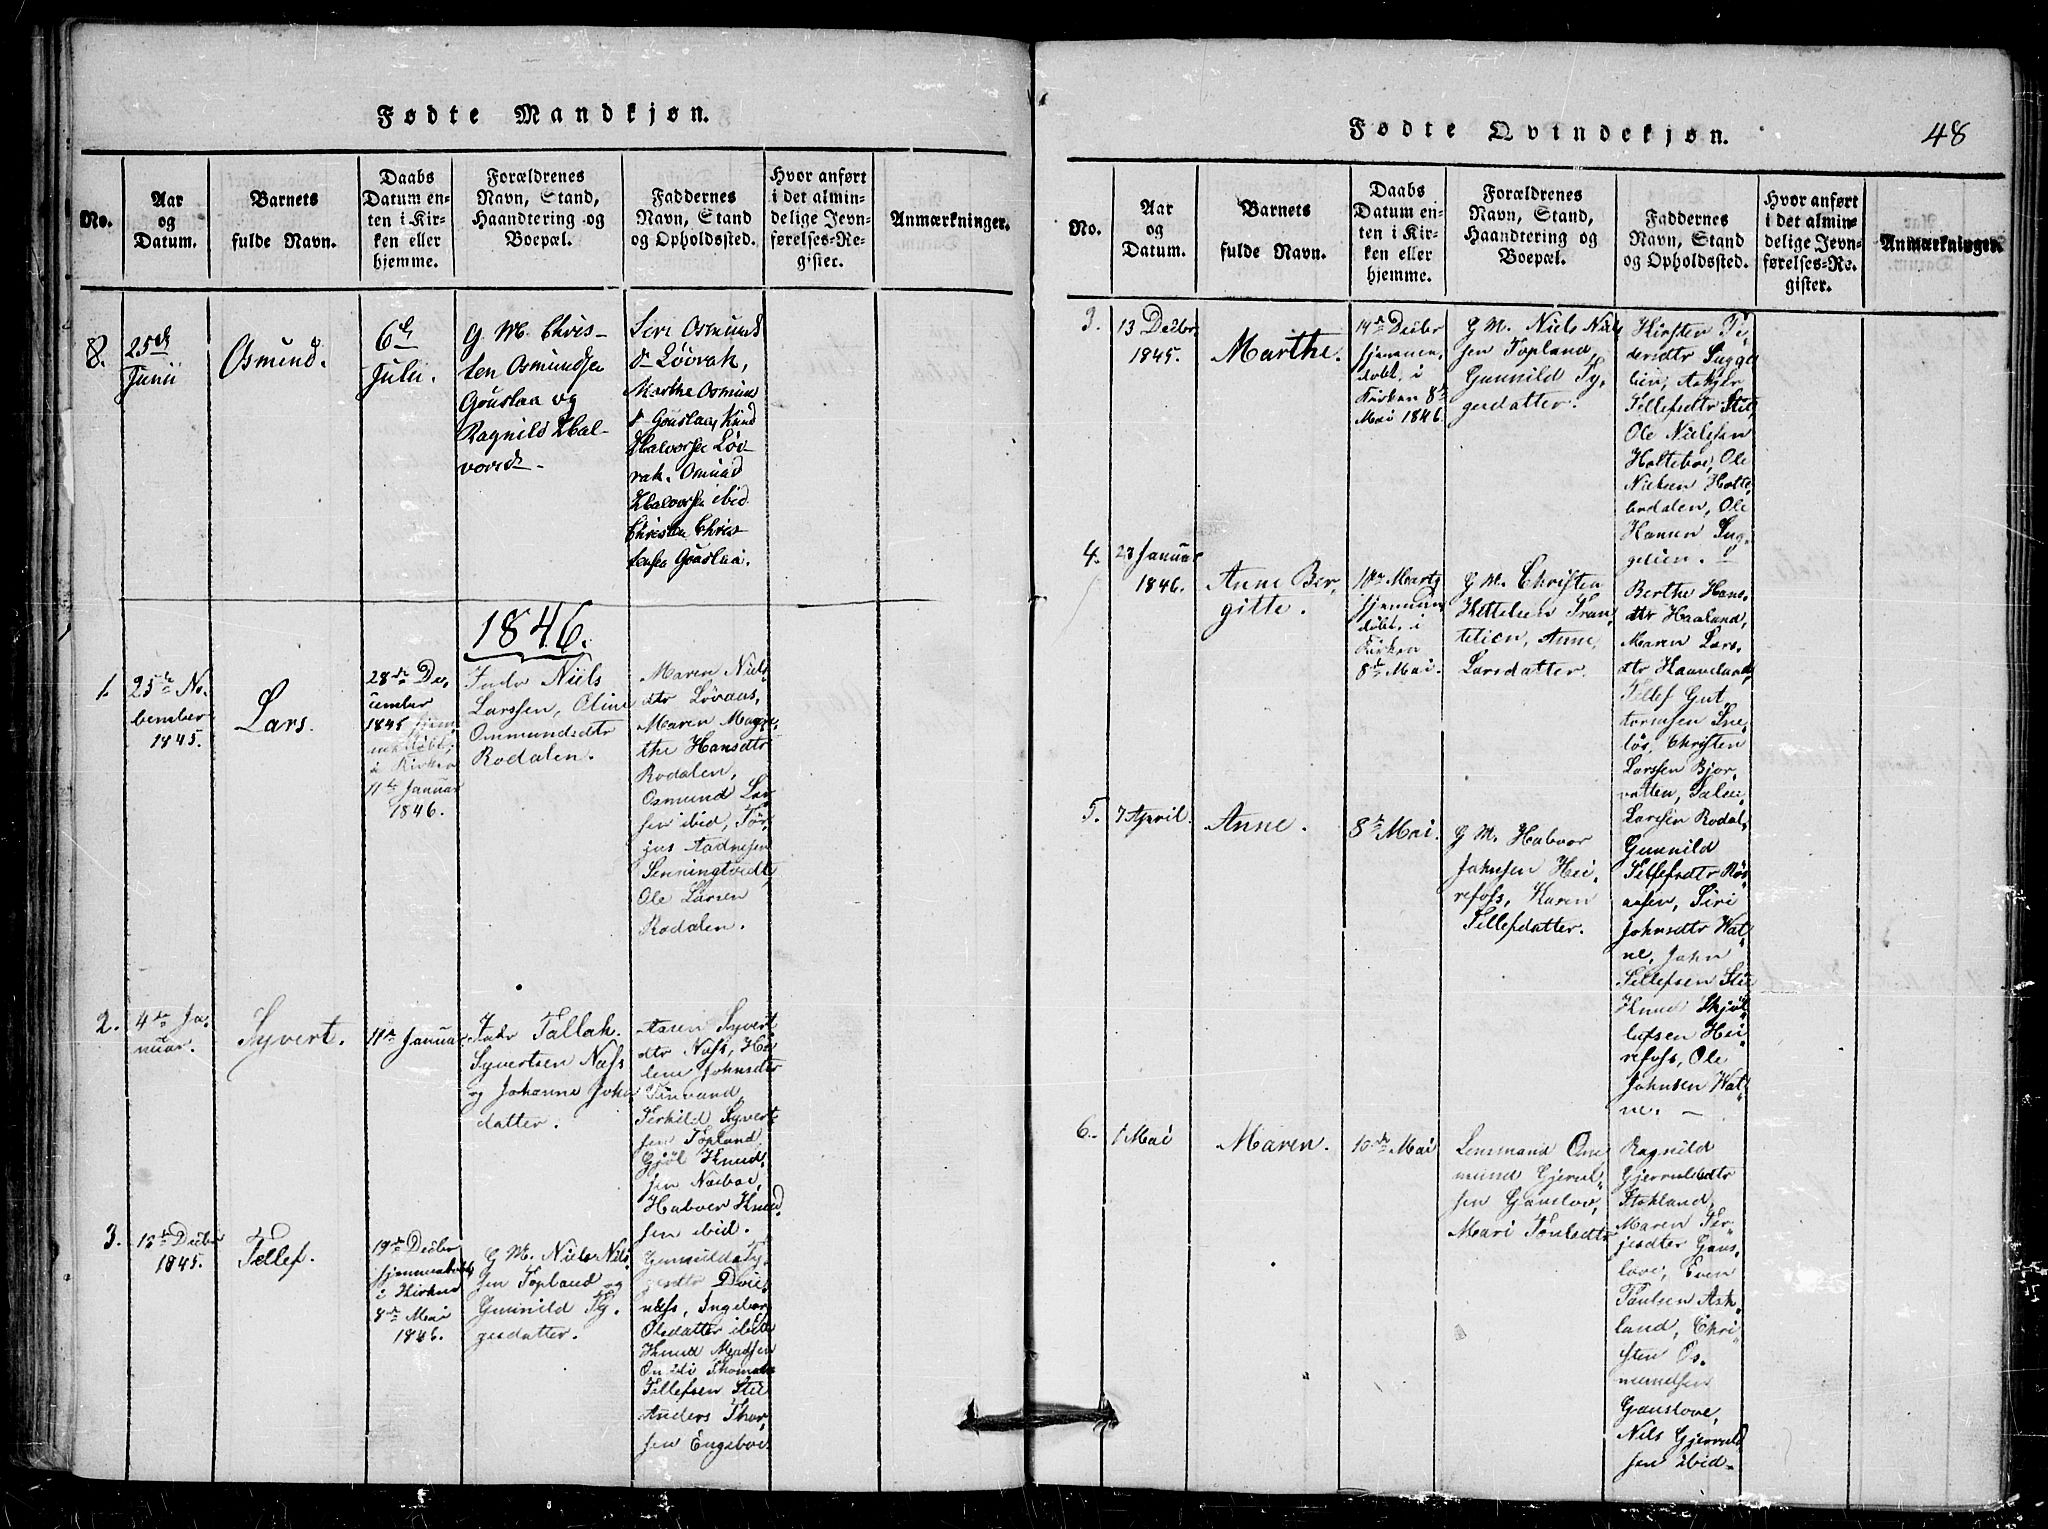 Fødte Mandkjøn.
No.
Aar
og
Datum.
Barnets
fulde Navn.
Daabs
Datum en-
ten i Kir-
ken eller
hjemme.
Forældrenes
Navn, Stand,
Haandtering og
Boepæl.
Faddernes
Navn, Stand
og Opholdssted.
Hvor anført
i det almin-
delige Jevn-
førelses-Re-
gister.
Anmærkninger.
8.
25de
Junii
Osmund.
6te
Julii.
G. M. Chris-
ten Osmundsen
Gouslaa og
Ragnild Hal-
vorsd.
Siri Osmunds
d. Løvrak,
Marthe Osmund
d. Gouslaa, Knud
Halvorsen Løv-
rak. Osmund
Halvorsen ibid
Christen Chris-
tensen Gouslaa.
1846.
1.
25de No-
vember
1845.
Lars.
28de De-
cember
1845 hjem-
medøbt,
i Kirken
11te Januar
1846.
Inds Niels
Larssen, Oline
Osmundsdtr
Rodalen.
Maren Niels
dtr Løvaas,
Maren Magre-
the Hansdtr
Rodalen,
Osmund Lar-
sen ibid, Tør-
jus Aadnesen
Senningtvedt,
Ole Larsen
Rodalen.
2.
4de Ja-
nuar.
Syvert.
11te Januar.
Inds Tallak
Syvertsen Næss
og Johanne Johns
datter.
Aaren Syvert
dtr Næss, He-
lene Johnsdtr
Tinvand,
Terkild Syvert
sen Topland,
Gjøl Knud-
sen Næsboe,
Halvor Knud-
sen ibid.
3.
13de Decbr
1845.
Tellef.
19de Decbr
hjemmedøbt
i Kirken
8de Mai
1846.
G. M. Niels Niel-
sen Topland og
Gunnild Ty-
gesdatter.
Gunnild Ty-
gesdtr Dvei-
næss, Ingebor
Olsdatter ibid
Knud Madsen
Thomas
Tellefsen Stie
Anders Thor-
sen Engeboe.
Fødte Qvindekjøn.
48
No.
Aar
og
Datum.
Barnets
fulde Navn.
Daabs
Datum en-
ten i Kir-
ken eller
hjemme.
Forældrenes
Navn, Stand,
Haandtering og
Boepæl.
Faddernes
Navn, Stand
og Opholdssted.
Hvor anført
i det almin-
delige Jevn-
førelses-Re-
gister.
Anmærkninger.
3.
13 Decbr
1845.
Marthe.
19de Decbr
hjemme-
døbt, i
Kirken 8de
Mai 1846.
G. M. Niels Niel
sen Topland,
Gunnild Ty-
gesdatter.
Kirsten Pe-
dersdtr Sugge-
lien,
Tellefsdtr Stie,
Ole Nielsen
Holteboe, Ole
Nielsen Holte-
bodalen, Ole
Hansen Sug-
gelien.
4.
23 Januar
1846.
Anne Ber-
gitte.
10de Marts
hjemme
døbt, i
Kirken
8de Mai.
G. M. Christen
Kittelsen Tran-
tetien, Anne
Larsdatter.
Berthe Hans-
dtr Haaland,
Maren Lars-
dtr Haaveland,
Tellef Gut-
tormsen Sne-
løs, Christen
Larssen Bjor-
vatten, Salve
Larssen Rodal.
5.
7 April.
Anne.
8de Mai.
G. M. Halvor
Johnsen Hei-
refoss, Karen
Tellefdatter.
Gunnild
Tellefsdtr Røs-
aasen, Siri
Johnsdtr Wat-
ne, John
Tellefsen Stie
Knud Skjøl-
lefsen Hei-
refoss, Ole
Johnsen Wat-
ne. —
6.
1 Mai
Maren.
10de Mai
Lensmand Os-
mund Gjerul-
sen Gauslov,
Mari Poulsdtr
Ragnild
Gjerulsdtr
Stokland,
Maren Ter-
jesdtr Gaus-
love, Even
Paulsen Ask-
land, Chri-
sten Os-
mundsen
Gauslove,
Nils Gjeruld
sen ibid.